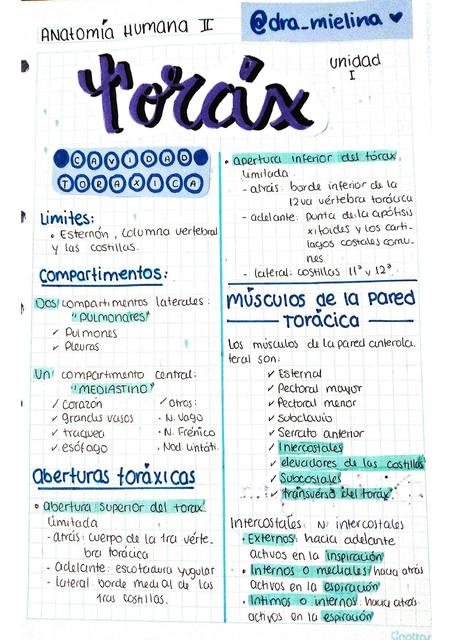 Anatomía Humana II
@dra_mielina
Unidad
I
Toráx
CAVIDAD
TORAXICA
Limites:
• Esternón, columna vertebral
y las costillas.
Compartimentos:
Dos compartimentos laterales:
"Pulmonares"
✓ Pulmones
✓ Pleuras
Un compartimento central:
"MEDIASTINO"
✓ Corazón
✓ grandes vasos
✓ traquea
✓ esófago
✓ Otros:
• N. Vago
• N. Frénico
• Nod. Linfáti.
Aberturas toráxicas
• abertura superior del torax:
limitada
- atrás: cuerpo de la 1ra vérte-
bra torácica
- adelante: escotadura yugular
- lateral: borde medial de las
1ras costillas.
• apertura inferior del tórax:
limitada.
- atrás: borde inferior de la
12va vértebra torácica
- adelante: punta de la apófisis
xifoides y los cartí-
lagos costales comu-
nes
- lateral: costillas 11ª y 12ª.
Músculos de la Pared
Torácica
Los músculos de la pared anterola
teral son:
✓ Esternal
✓ Pectoral mayor
✓ Pectoral menor
✓ Subclavio
✓ Serrato anterior
✓ Intercostales
✓ elevadores de las costillas
✓ Subcostales
✓ transverso del torax
Intercostales: N intercostales
• Externos: hacia adelante
activos en la inspiración
• Internos o mediales: hacia atrás
activos en la espiración
• Intimos o internos: hacia atrás
activos en la espiración